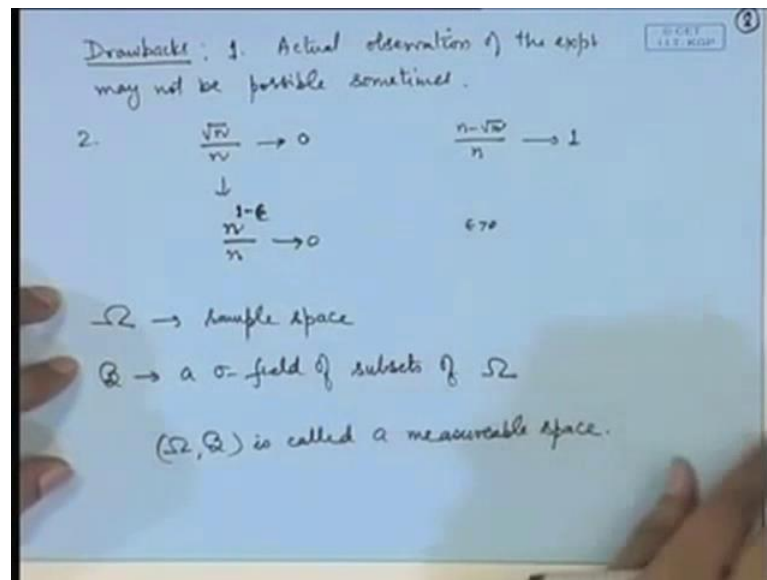 ②
© CET
I.I.T. KGP
Drawbacks : 1. Actual observation of the expt
may not be possible sometimes.
2. √n/n → 0 n-√n/n → 1
↓
n^{1-ϵ}/n → 0 ϵ>0
Ω → sample space
B → a σ-field of subsets of Ω
(Ω, B) is called a measureable space.